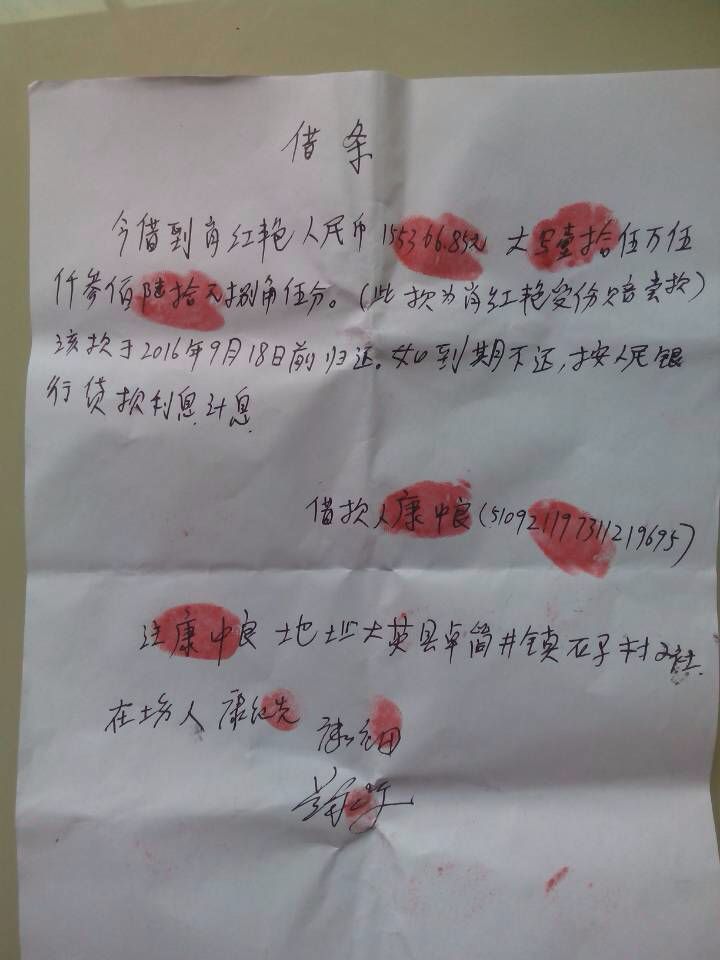 借条
今借到肖红艳人民币155366.85元 大写壹拾伍万伍
仟参佰陆拾元捌角伍分。(此款为肖红艳受份赔卖款)
该款于2016年9月18日前归还。如到期不还,按人民银
行贷款利息计息
借款人康中良(510921197311219695)
注康中良 地址大英县卓筒井镇石子村2社
在场人 康纪先